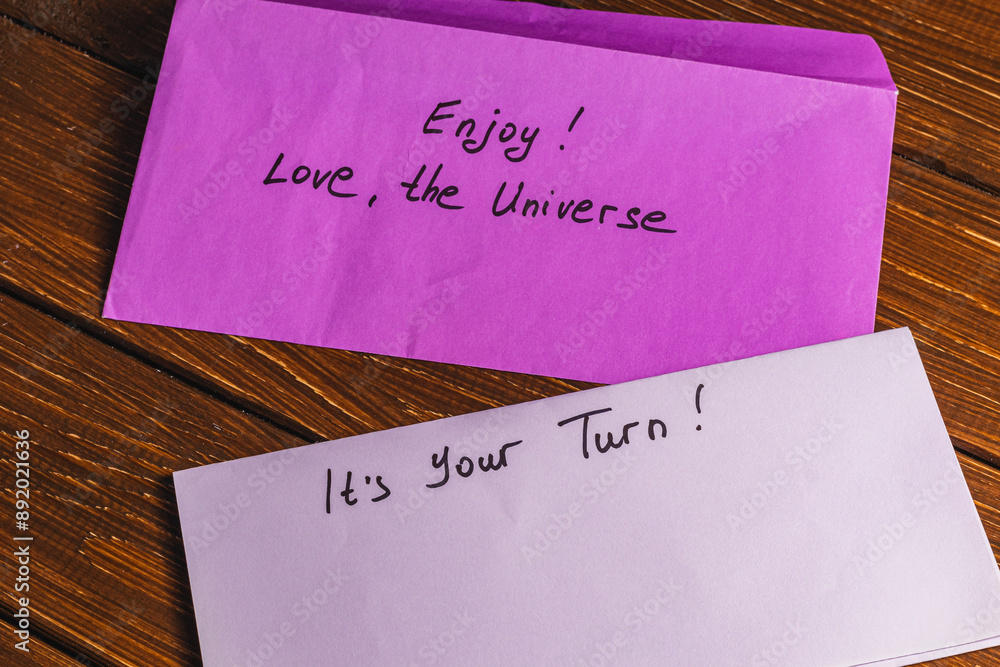 Enjoy!
Love, the Universe
It's your Turn!
Adobe Stock | #892021636